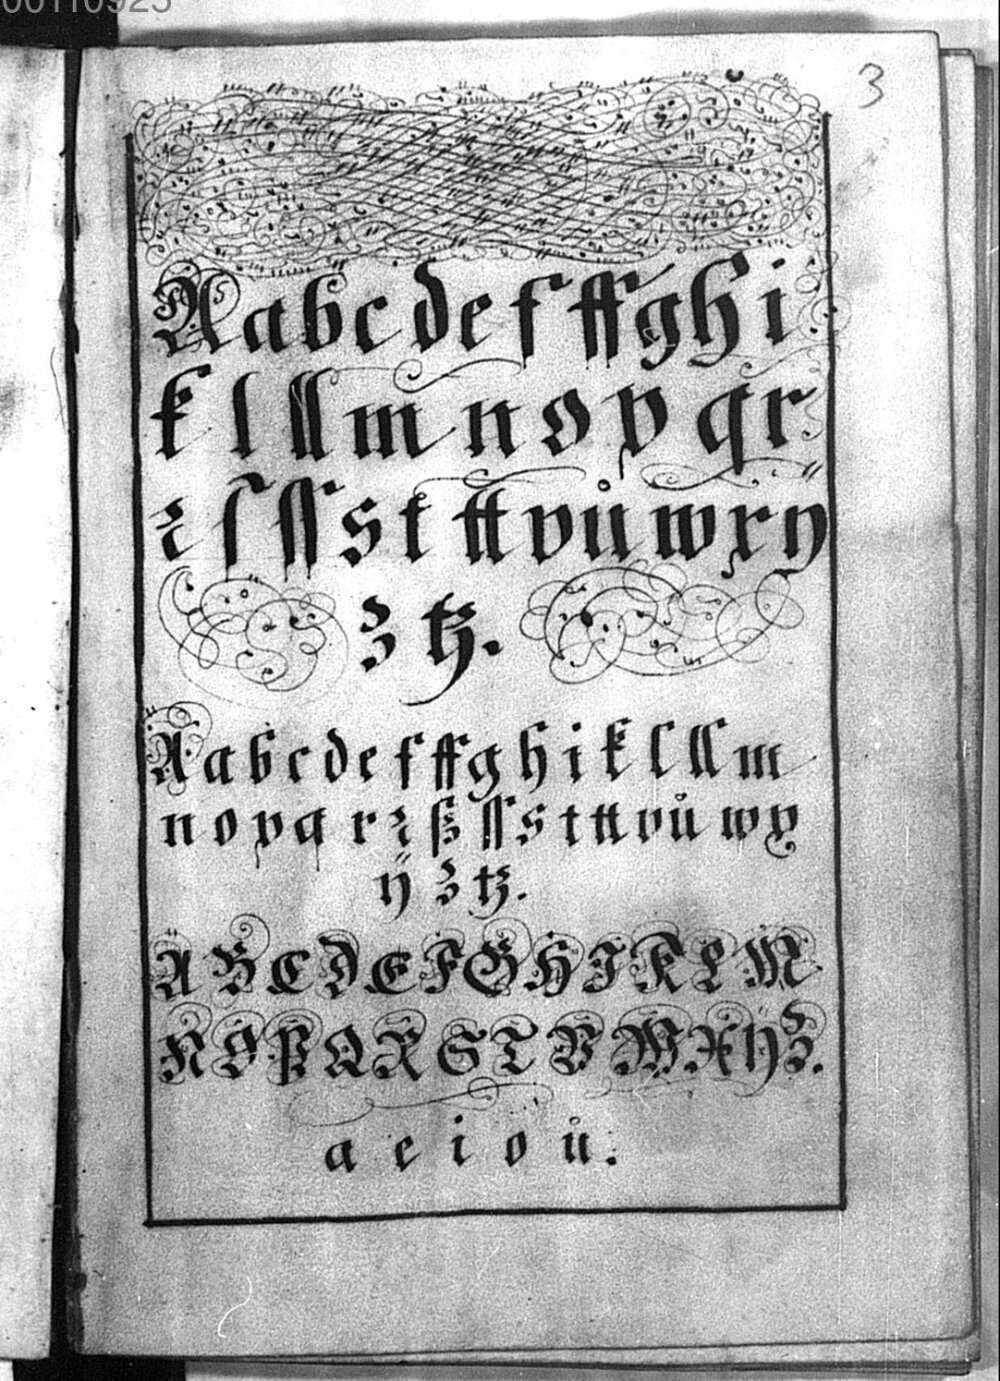 00110925
3
A a b c d e f ff g h i
k l ll m n o p q r
ꝛ ſ ſſ s t tt v ů w x ÿ
z tz.
A a b c d e f ff g h i k l ll m
n o p q r ꝛ ß ſſ s t tt v ů w x
ÿ z tz.
A B C D E F G H I K L M
N O P Q R S T V W X Y Z.
a e i o ů.